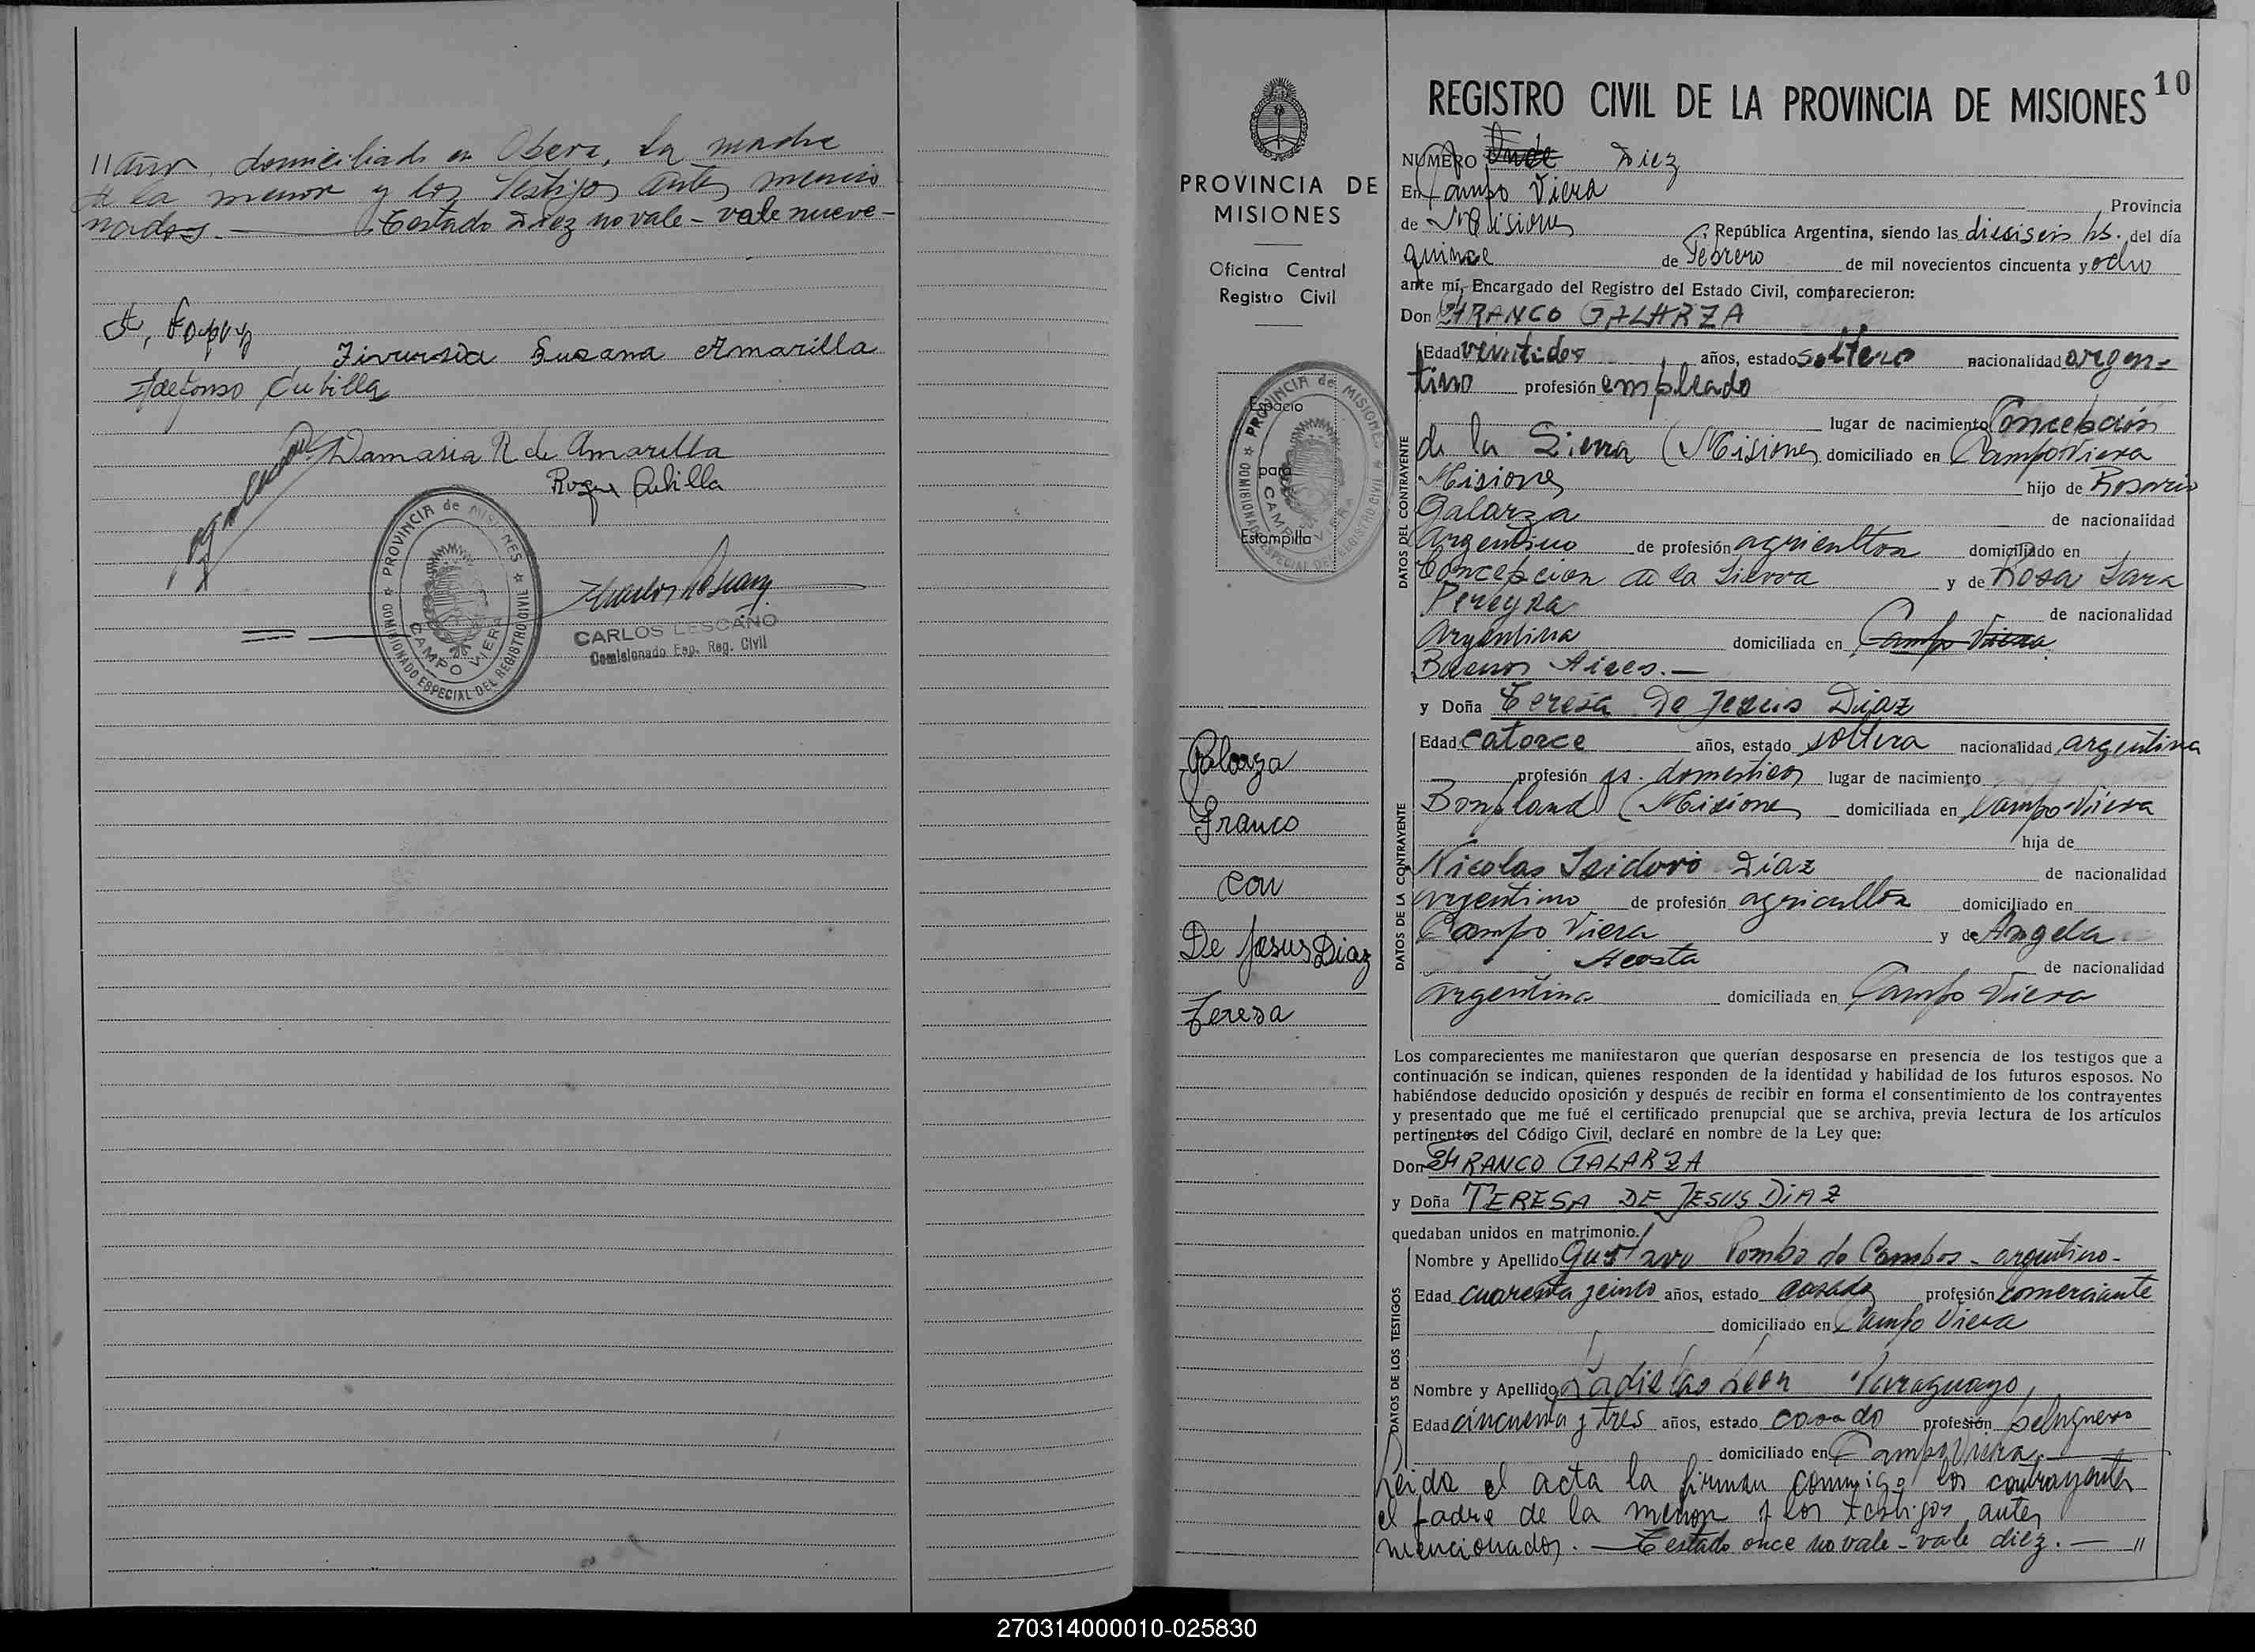 años, domiciliado en Obera, la madre
de la menor y los testigos antes mencio
nados. Testado diez no vale - vale nueve -
Susana Amarilla
Idelfonso Cubilla
Damasia R de Amarilla
Roque Cubilla
PROVINCIA de MISIONES
CAMPO VIERA
COMISIONADO ESPECIAL DEL REGISTRO CIVIL
CARLOS LESCANO
Comisionado Esp. Reg. Civil
PROVINCIA DE
MISIONES
Oficina Central
Registro Civil
Espacio
para
Estampilla
PROVINCIA de MISIONES
CAMPO VIERA
COMISIONADO ESPECIAL DEL REGISTRO CIVIL
Galarza
Franco
con
De Jesus Diaz
Teresa
10
REGISTRO CIVIL DE LA PROVINCIA DE MISIONES
NUMERO Once Diez
En Campo Viera Provincia
de Misiones, República Argentina, siendo las dieciseis hs. del día
quince de Febrero de mil novecientos cincuenta y ocho
ante mí, Encargado del Registro del Estado Civil, comparecieron:
Don FRANCO GALARZA
DATOS DEL CONTRAYENTE
Edad veintidos años, estado soltero nacionalidad argen-
tino profesión empleado
lugar de nacimiento Concepción
de la Sierra (Misiones domiciliado en Campo Viera
Misiones hijo de Rosario
Galarza de nacionalidad
Argentino de profesión agricultor domiciliado en
Concepcion de la Sierra y de Rosa Sara
Pereyra de nacionalidad
Argentina domiciliada en Campo Viera
Buenos Aires. -
y Doña Teresa De Jesus Diaz
DATOS DE LA CONTRAYENTE
Edad catorce años, estado soltera nacionalidad argentina
profesión qs. domesticos lugar de nacimiento
Bonpland (Misiones domiciliada en Campo Viera
hija de
Nicolas Isidoro Diaz de nacionalidad
argentino de profesión agricultor domiciliado en
Campo Viera y de Angela
Acosta de nacionalidad
argentina domiciliada en Campo Viera
Los comparecientes me manifestaron que querían desposarse en presencia de los testigos que a
continuación se indican, quienes responden de la identidad y habilidad de los futuros esposos. No
habiéndose deducido oposición y después de recibir en forma el consentimiento de los contrayentes
y presentado que me fué el certificado prenupcial que se archiva, previa lectura de los artículos
pertinentes del Código Civil, declaré en nombre de la Ley que:
Don FRANCO GALARZA
y Doña TERESA DE JESUS DIAZ
quedaban unidos en matrimonio.
DATOS DE LOS TESTIGOS
Nombre y Apellido Gustavo Pombo de Campos - argentino -
Edad cuarenta y cinco años, estado casado profesión comerciante
domiciliado en Campo Viera
Nombre y Apellido Ladislao Leon Paraguayo,
Edad cincuenta y tres años, estado casado profesión peluquero
domiciliado en Campo Viera.
Leida el acta la firman conmigo los contrayentes
el padre de la menor y los testigos antes
mencionados. - Testado once no vale - vale diez. - "
270314000010-025830